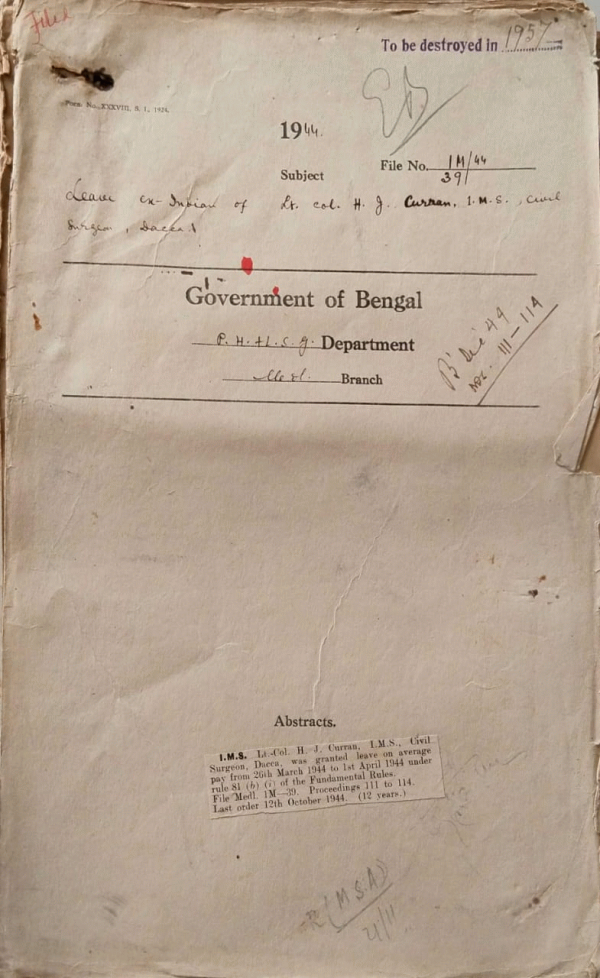 Filed
To be destroyed in 1957
Form No. XXXVIII, S. I., 1924.
1944.
File No. 1M/44
39/
Subject
Leave ex-Indian of Lt. col. H. J. Curran, I.M.S., Civil
Surgeon, Dacca
Government of Bengal
P. H. & L. S. G. Department
Medl. Branch
B Dec 49
Nos. 111-114
Abstracts.
I.M.S. Lt.-Col. H. J. Curran, I.M.S., Civil
Surgeon, Dacca, was granted leave on average
pay from 26th March 1944 to 1st April 1944 under
rule 81 (b) (i) of the Fundamental Rules.
File Medl. 1M—39. Proceedings 111 to 114.
Last order 12th October 1944. (12 years.)
(M.S.A)
21/11